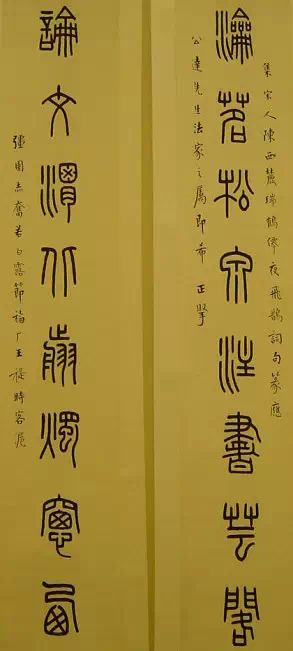 集宋人陳西麓瑞鶴僊夜飛鵲詞句篆應
瀹茗松泉注書芸閣
公達先生法家之屬即希 正擘
論文渭北前燭窗西
彊圉赤奮若白露節福厂王禔時客滬